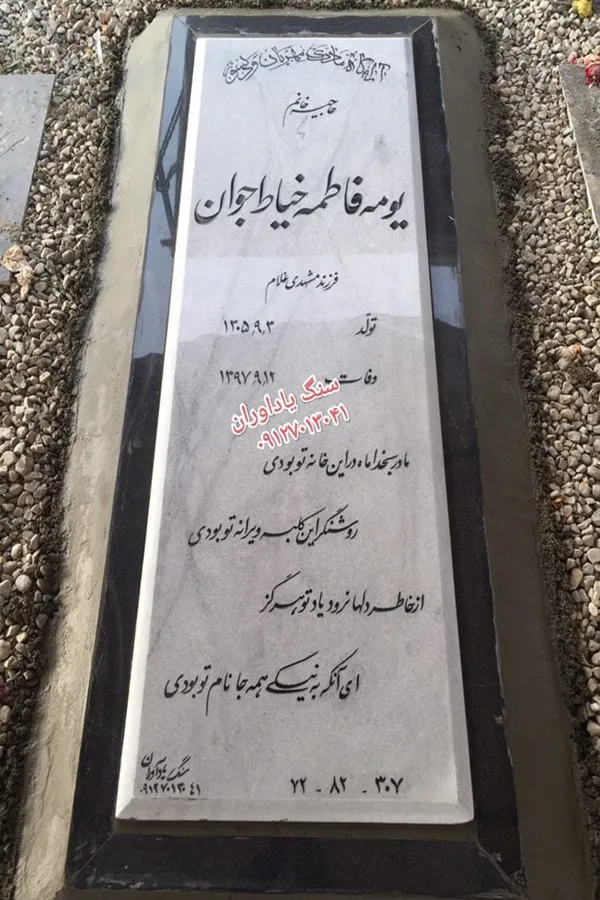 آرامگاه مادری مهربان و دلسوز
حاجیه خانم
یومه فاطمه خیاط اجوان
فرزند مشهدی غلام
تولد ۱۳۰۵,۹,۳
وفات ۱۳۹۷,۹,۱۲
سنگ یاداوران
۰۹۱۲۷۰۱۳۰۴۱
مادر بخدا ماه در این خانه تو بودی
روشنگر این کلبه ویرانه تو بودی
از خاطر دلها نرود یاد تو هرگز
ای آنکه به نیکی همه جا نام تو بودی
سنگ یادآوران
۰۹۱۲۷۰۱۳۰۴۱
۷۲ - ۸۲ - ۳۰۷